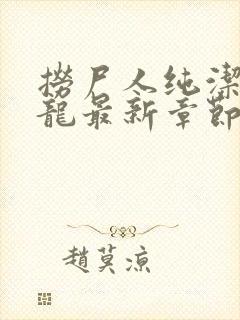 撈尸人纯潔
龍最新章節
趙莫涼